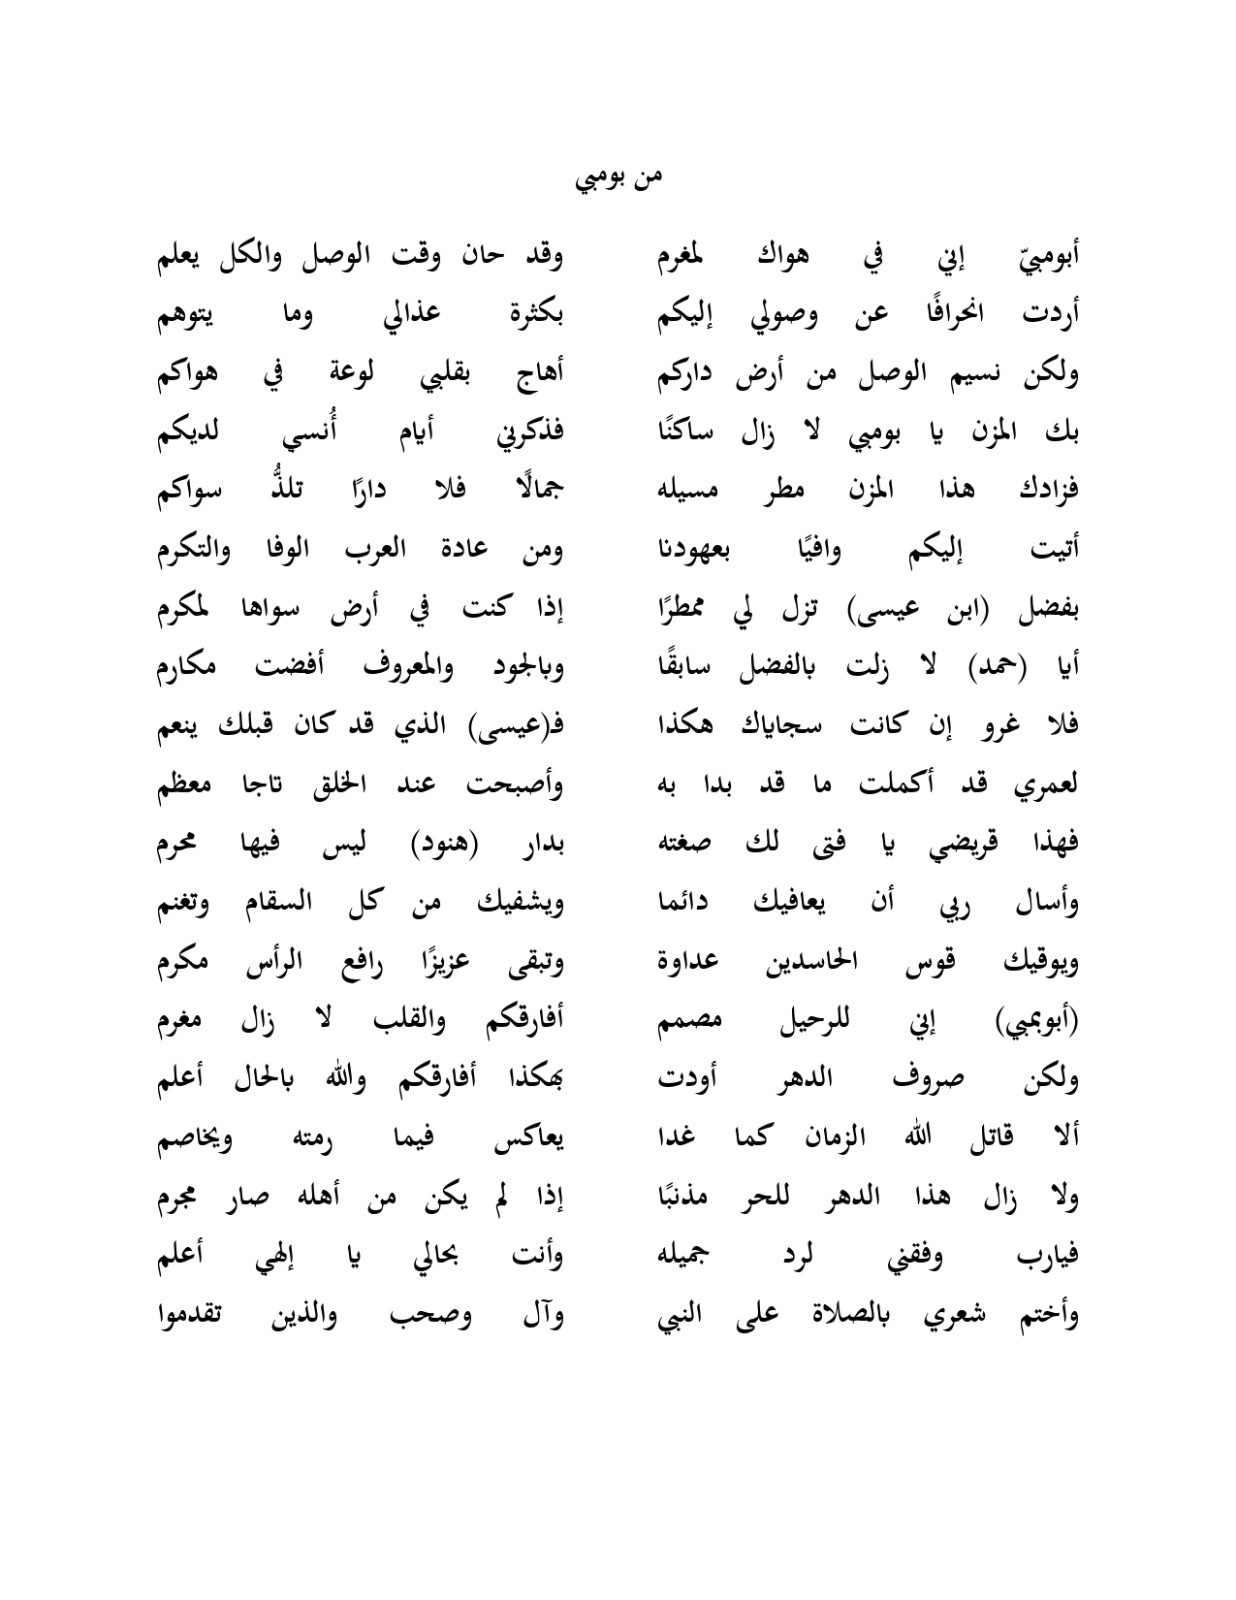 من بومبي
أبومبيّ إني في هواك لمغرم وقد حان وقت الوصل والكل يعلم
أردت انحرافًا عن وصولي إليكم بكثرة عذالي وما يتوهم
ولكن نسيم الوصل من أرض داركم أهاج بقلبي لوعة في هواكم
بك المزن يا بومبي لا زال ساكنًا فذكرني أيام أُنسي لديكم
فزادك هذا المزن مطر مسيله جمالًا فلا دارًا تلذُّ سواكم
أتيت إليكم وافيًا بعهودنا ومن عادة العرب الوفا والتكرم
بفضل (ابن عيسى) تزل لي ممطرًا إذا كنت في أرض سواها لمكرم
أيا (حمد) لا زلت بالفضل سابقًا وبالجود والمعروف أفضت مكارم
فلا غرو إن كانت سجاياك هكذا فـ(عيسى) الذي قد كان قبلك ينعم
لعمري قد أكملت ما قد بدا به وأصبحت عند الخلق تاجا معظم
فهذا قريضي يا فتى لك صغته بدار (هنود) ليس فيها محرم
وأسال ربي أن يعافيك دائما ويشفيك من كل السقام وتغنم
ويوقيك قوس الحاسدين عداوة وتبقى عزيزًا رافع الرأس مكرم
(أبوبمبي) إني للرحيل مصمم أفارقكم والقلب لا زال مغرم
ولكن صروف الدهر أودت بهكذا أفارقكم والله بالحال أعلم
ألا قاتل الله الزمان كما غدا يعاكس فيما رمته ويخاصم
ولا زال هذا الدهر للحر مذنبًا إذا لم يكن من أهله صار مجرم
فيارب وفقني لرد جميله وأنت بحالي يا إلهي أعلم
وأختم شعري بالصلاة على النبي وآل وصحب والذين تقدموا